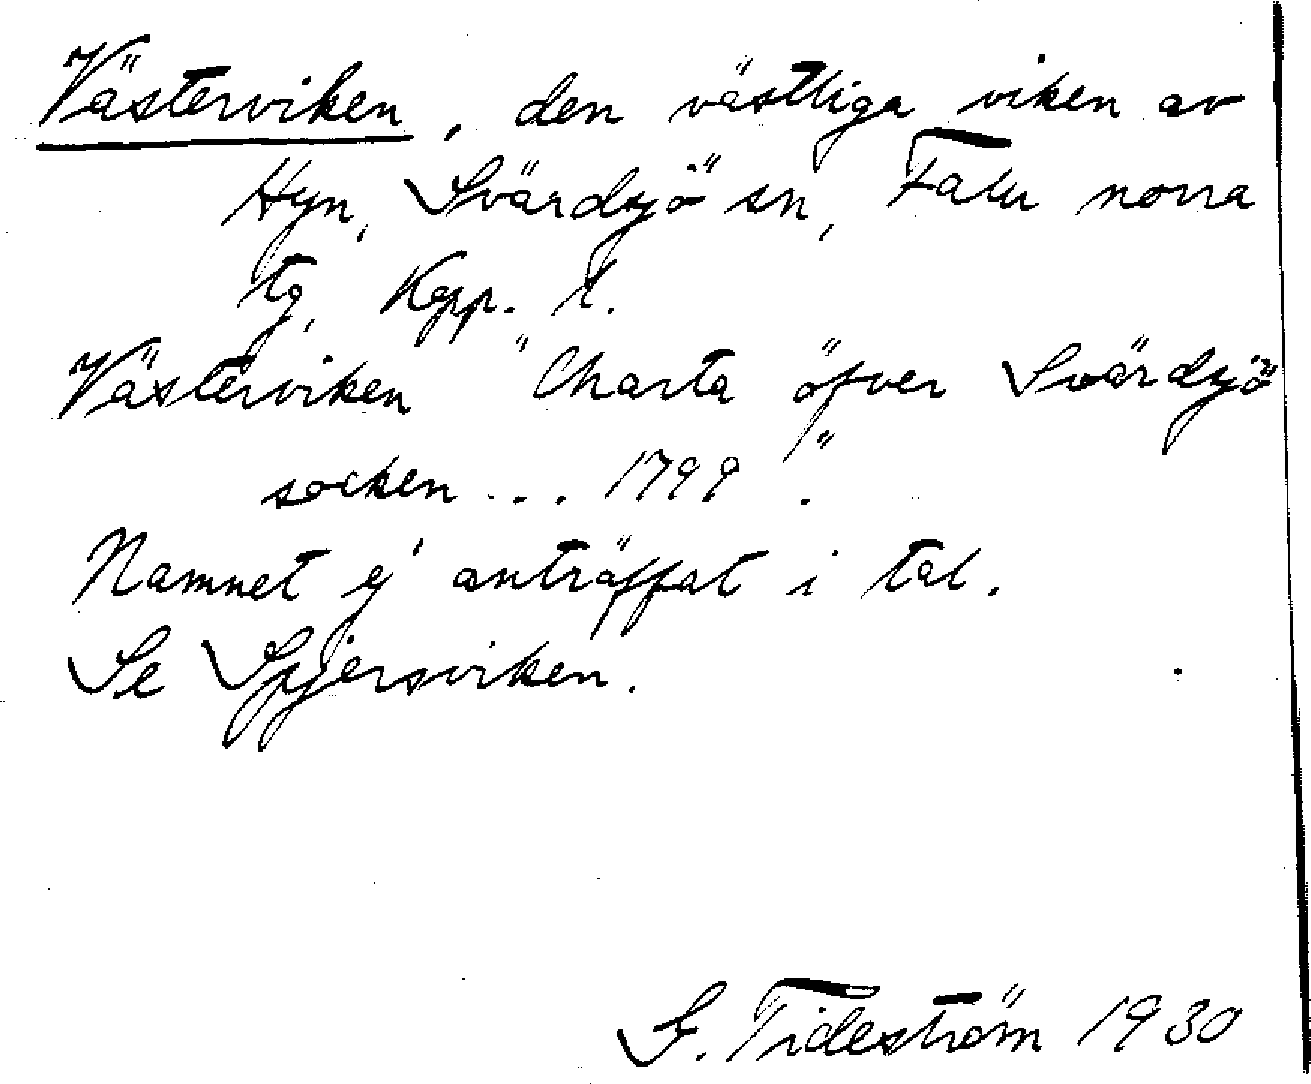 Västerviken, den västliga viken av
Hyn, Svärdsjö sn, Falu norra
tg, Kopp. l.
Västerviken "Charta öfver Svärdsjö
socken ... 1799".
Namnet ej anträffat i tal.
Se Spjersviken.
G. Tideström 1930